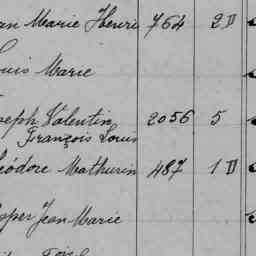 an Marie Henri 764 2D
Louis Marie
Joseph Valentin 2056 5
François Louis
éodore Mathurin 487 1D
sper Jean Marie